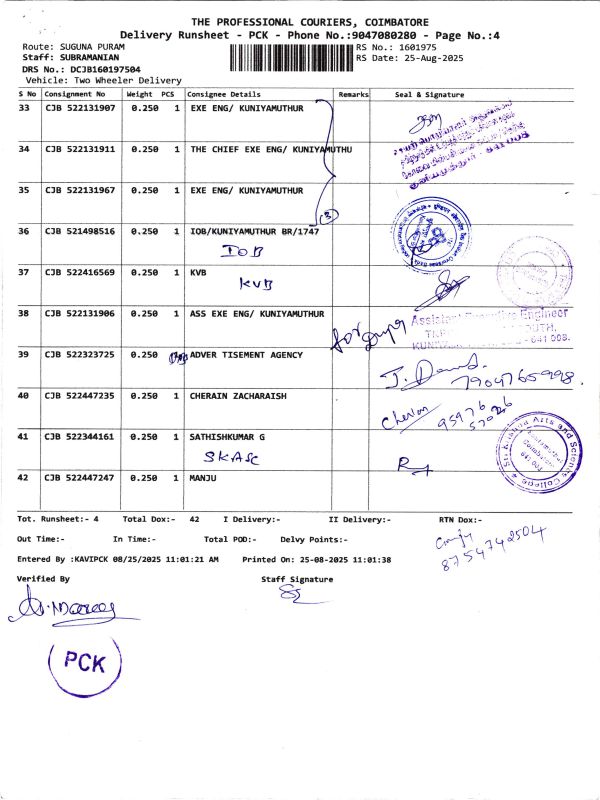 THE PROFESSIONAL COURIERS, COIMBATORE
Delivery Runsheet - PCK - Phone No.:9047080280 - Page No.:4
Route: SUGUNA PURAM
RS No.: 1601975
Staff: SUBRAMANIAN
RS Date: 25-Aug-2025
DRS No.: DCJB160197504
Vehicle: Two Wheeler Delivery
S No Consignment No Weight PCS Consignee Details Remarks Seal & Signature
33 CJB 522131907 0.250 1 EXE ENG/ KUNIYAMUTHUR
34 CJB 522131911 0.250 1 THE CHIEF EXE ENG/ KUNIYAMUTHU
35 CJB 522131967 0.250 1 EXE ENG/ KUNIYAMUTHUR
(3)
36 CJB 521498516 0.250 1 IOB/KUNIYAMUTHUR BR/1747
IOB
37 CJB 522416569 0.250 1 KVB
KVB
38 CJB 522131906 0.250 1 ASS EXE ENG/ KUNIYAMUTHUR
for
Assistant Executive Engineer
641 008.
39 CJB 522323725 0.250 ADVER TISEMENT AGENCY
7904765998.
40 CJB 522447235 0.250 1 CHERAIN ZACHARAISH
Cherian
95976
57026
41 CJB 522344161 0.250 1 SATHISHKUMAR G
SKASC
Sri Krishna Arts and Science College
42 CJB 522447247 0.250 1 MANJU
Tot. Runsheet:- 4 Total Dox:- 42 I Delivery:- II Delivery:- RTN Dox:-
Out Time:- In Time:- Total POD:- Delvy Points:-
8754742504
Entered By :KAVIPCK 08/25/2025 11:01:21 AM Printed On: 25-08-2025 11:01:38
Verified By Staff Signature
PCK